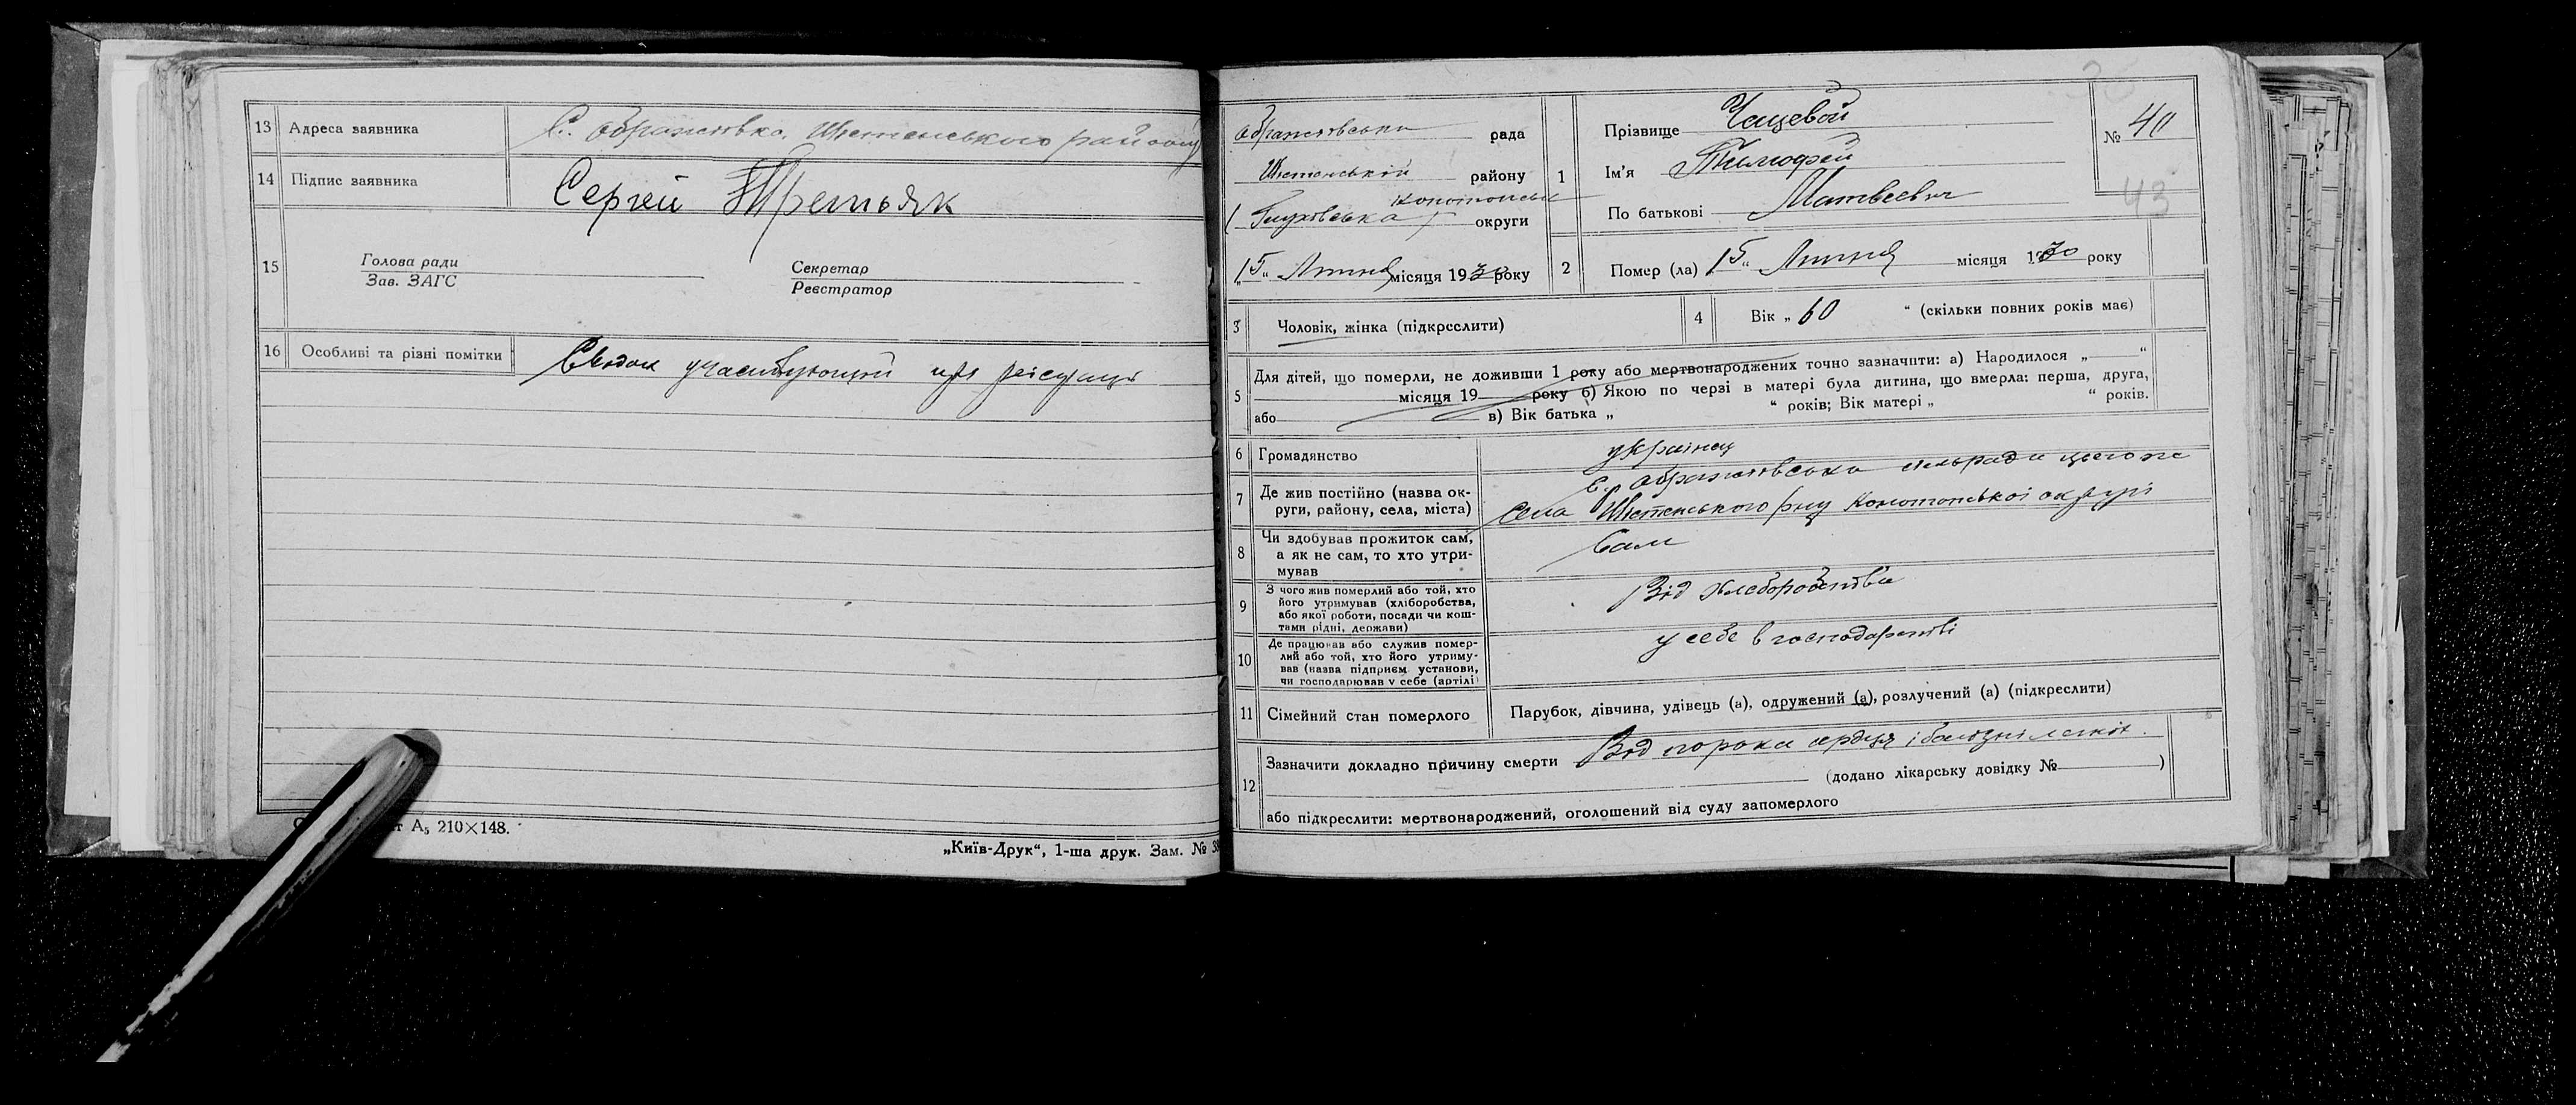 13 Адреса заявника С. Ображіївка, Шостенського району
14 Підпис заявника Сергей Третьяк
15 Голова ради
Зав. ЗАГС
Секретар
Реєстратор
16 Особливі та різні помітки
А₅ 210×148.
„Київ-Друк“, 1-ша друк. Зам. №
Ображіївська рада
Шостенський району
Конотопськ
( Глухівська ) округи
„15„ Липня місяця 1930 року
1 Прізвище Чещевой
Ім'я Тимофей
По батькові Матвеевич
№ 40
43
2 Помер (ла) 15„ Липня місяця 1930 року
3 Чоловік, жінка (підкреслити)
4 Вік „ 60 “ (скільки повних років має)
5 Для дітей, що померли, не доживши 1 року або мертвонароджених точно зазначити: а) Народилося „ “
місяця 19 року б) Якою по черзі в матері була дитина, що вмерла: перша, друга,
або в) Вік батька „ “ років; Вік матері „ “ років.
6 Громадянство українец
7 Де жив постійно (назва ок-
руги, району, села, міста)
С. Ображіївська сельрада цього же
села Шостенського р-ну Конотопської округи
8 Чи здобував прожиток сам,
а як не сам, то хто утри-
мував
Сам
9 З чого жив померлий або той, хто
його утримував (хліборобства,
або якої роботи, посади чи кош-
тами рідні, держави)
Від хлеборобства
10 Де працював або служив помер-
лий або той, хто його утриму-
вав (назва підприєм. установи,
чи господарював у себе (артілі)
у себе в господарстві
11 Сімейний стан померлого Парубок, дівчина, удівець (а), одружений (а), розлучений (а) (підкреслити)
12 Зазначити докладно причину смерти Від порока сердця і болізні легкіх.
(додано лікарську довідку № )
або підкреслити: мертвонароджений, оголошений від суду запомерлого